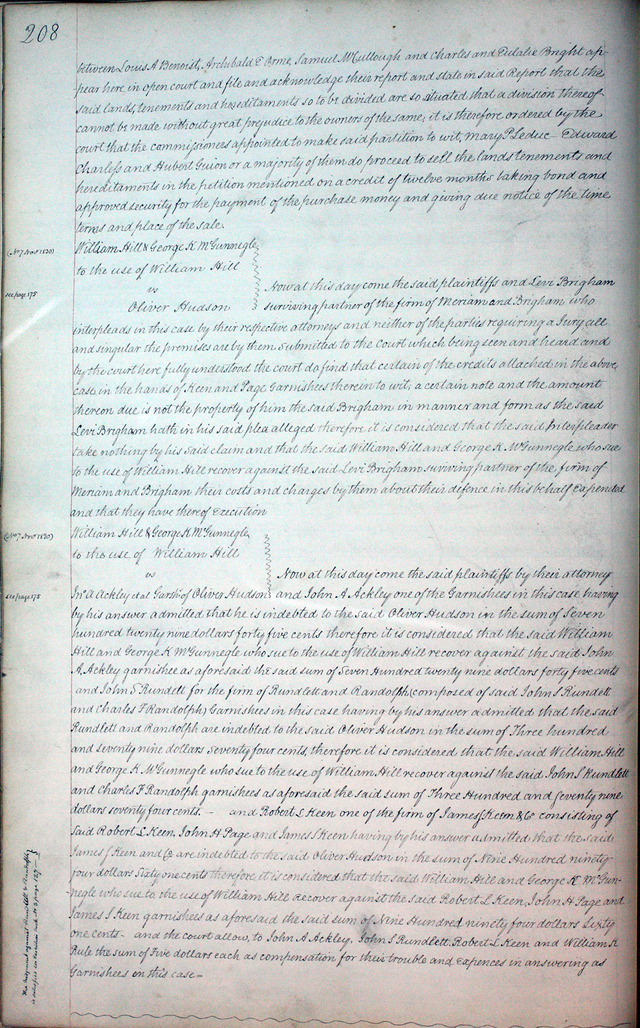 208
between Louis A Benoist, Archibald E Orme, Samuel McCullough and Charles and Eulalie Bright ap-
pear here in open court and file and acknowledge their report and state in said Report that the
said lands, tenements and hereditaments so to be divided are so situated that a division thereof
cannot be made without great prejudice to the owners of the same; it is therefore ordered by the
court that the commissioners appointed to make said partition to wit, Mary P Leduc – Edward
Charless and Hubert Guion or a majority of them do proceed to sell the lands tenements and
hereditaments in the petition mentioned on a credit of twelve months taking bond and
approved security for the payment of the purchase money and giving due notice of the time
terms and place of the sale.
(No 7 Nov 1830)
William Hill & George K McGunnegle
to the use of William Hill
see page 175
vs
Oliver Hudson
Now at this day come the said plaintiffs and Levi Brigham
surviving partner of the firm of Meriam and Brigham who
interpleads in this case by their respective attorneys and neither of the parties requiring a Jury all
and singular the premises are by them submitted to the court which being seen and heard and
by the court here fully understood the court do find that certain of the credits attached in the above
case in the hands of Keen and Page Garnishees therein to wit, a certain note and the amount
thereon due is not the property of him the said Brigham in manner and form as the said
Levi Brigham hath in his said plea alleged therefore it is considered that the said Interpleader
take nothing by his said claim and that the said William Hill and George K. McGunnegle who sue
to the use of William Hill recover against the said Levi Brigham surviving partner of the firm of
Meriam and Brigham their costs and charges by them about their defence in this behalf expended
and that they have thereof Execution
(No 7 Nov 1830)
William Hill & George K McGunnegle
to the use of William Hill
vs
see page 175
Jno A Ackley et al Garsh of Oliver Hudson
Now at this day come the said plaintiffs by their attorney
and John A Ackley one of the Garnishees in this case having
by his answer admitted that he is indebted to the said Oliver Hudson in the sum of Seven
hundred twenty nine dollars forty five cents therefore it is considered that the said William
Hill and George K McGunnegle who sue to the use of William Hill recover against the said John
A Ackley garnishee as aforesaid the said sum of Seven Hundred twenty nine dollars forty five cents
and John S Rundlett for the firm of Rundlett and Randolph (composed of said John S Rundlett
and Charles F Randolph) Garnishees in this case having by his answer admitted that the said
Rundlett and Randolph are indebted to the said Oliver Hudson in the sum of Three hundred
and seventy nine dollars seventy four cents, therefore it is considered that the said William Hill
and George K. McGunnegle who sue to the use of William Hill recover against the said John S Rundlett
and Charles F Randolph garnishees as aforesaid the said sum of Three Hundred and Seventy nine
dollars seventy four cents. – and Robert L Keen one of the firm of James J Keen & Co consisting of
said Robert L Keen, John H Page and James J Keen having by his answer admitted that the said
James J Keen and Co are indebted to the said Oliver Hudson in the sum of Nine Hundred ninety
four dollars sixty one cents therefore it is considered that the said William Hill and George K McGun-
negle who sue to the use of William Hill recover against the said Robert L Keen, John H Page and
James J Keen garnishees as aforesaid the said sum of Nine Hundred ninety four dollars Sixty
one cents – and the court allow, to John A Ackley, John S Rundlett Robert L Keen and William K
Rule the sum of Five dollars each as compensation for their trouble and expences in answering as
Garnishees in this case –
The Judgment against Rundlett & Randolph
is satisfied
page 287